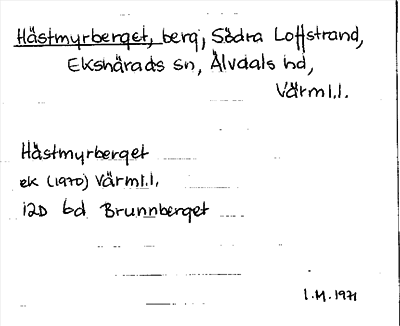 Hästmyrberget, berg, Södra Loffstrand,
Ekshärads sn, Älvdals hd,
Värml.l.
Hästmyrberget
ek (1970) Värml.l.
12D bd Brunnberget
I.M. 1971